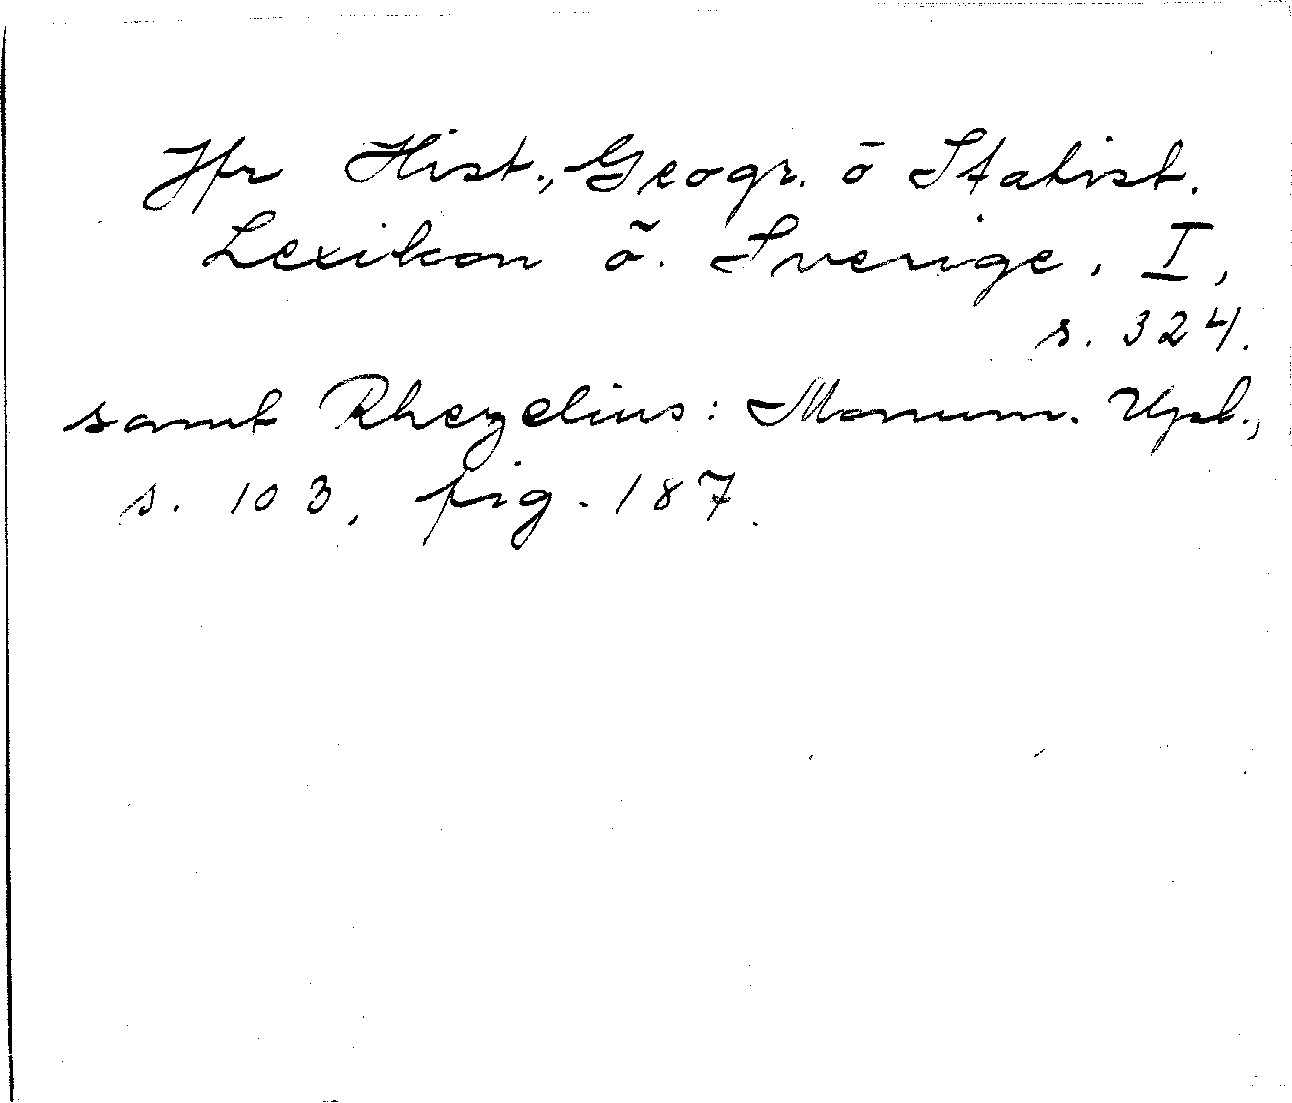 Jfr Hist., Geogr. ō Statist.
Lexikon ö. Sverige, I,
s. 324.
samt Rhezelius: Monum. Upl.,
s. 103, fig. 187.